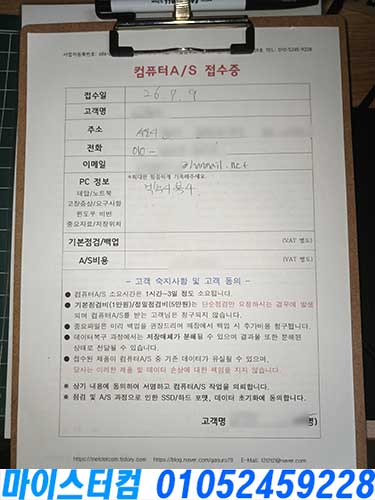 컴퓨터A/S 접수증
접수일 26 7. 9
고객명
주소
전화 010-
이메일 @hmail.net
PC 정보 *최대한 꼼꼼하게 기록해주세요.
데탑/노트북
고장증상/요구사항
윈도우 비번
중요자료/저장위치
기본점검/백업 (VAT 별도)
A/S비용 (VAT 별도)
- 고객 숙지사항 및 고객 동의 -
● 컴퓨터A/S 소요시간은 1시간~3일 정도 소요됩니다.
● 기본점검비(1만원)/정밀점검비(5만원)는 단순점검만 요청하시는 경우에 발생
되며 컴퓨터A/S를 받는 고객님은 청구되지 않습니다.
● 중요파일은 미리 백업을 권장드리며 매장에서 백업 시 추가비용 청구됩니다.
● 데이터복구 과정에서는 저장매체가 분해될 수 있으며 결과물 또한 분해된
상태로 전달될 수 있습니다.
● 접수된 제품이 컴퓨터A/S 중 기존 데이터가 유실될 수 있으며,
당사는 이러한 제품 및 데이터 손상에 대한 책임을 지지 않습니다.
※ 상기 내용에 동의하여 서명하고 컴퓨터A/S 작업을 의뢰합니다.
※ 점검 및 A/S 과정으로 인한 SSD/하드 포맷, 데이터 초기화에 동의합니다.
고객명
마이스터컴 01052459228